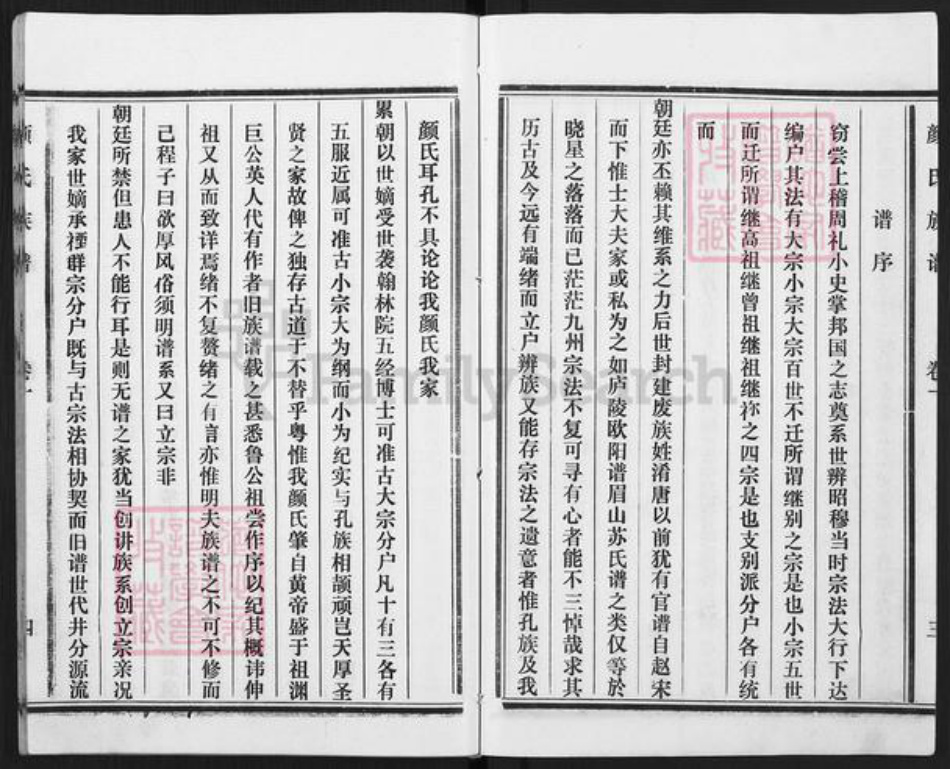 颜氏族谱 卷一 三
谱序
窃尝上稽周礼小史掌邦国之志奠系世辨昭穆当时宗法大行下达
编户其法有大宗小宗大宗百世不迁所谓继别之宗是也小宗五世
而迁所谓继高祖继曾祖继祖继祢之四宗是也支别派分户各有统
而
朝廷亦丕赖其维系之力后世封建废族姓淆唐以前犹有官谱自赵宋
而下惟士大夫家或私为之如庐陵欧阳谱眉山苏氏谱之类仅等於
晓星之落落而已茫茫九州宗法不复可寻有心者能不三悼哉求其
历古及今远有端绪而立户辨族又能存宗法之遗意者惟孔族及我
颜氏耳孔不具论论我颜氏我家
累朝以世嫡受世袭翰林院五经博士可准古大宗分户凡十有三各有
五服近属可准古小宗大为纲而小为纪实与孔族相颉颃岂天厚圣
贤之家故俾之独存古道于不替乎粤惟我颜氏肇自黄帝盛于祖渊
巨公英人代有作者旧族谱载之甚悉鲁公祖尝作序以纪其概讳伸
祖又从而致详焉绪不复赘绪之有言亦惟明夫族谱之不可不修而
己程子曰欲厚风俗须明谱系又曰立宗非
朝廷所禁但患人不能行耳是则无谱之家犹当创讲族系创立宗亲况
我家世嫡承禋群宗分户既与古宗法相协契而旧谱世代井分源流
颜氏族谱 卷一 四
FamilySearch